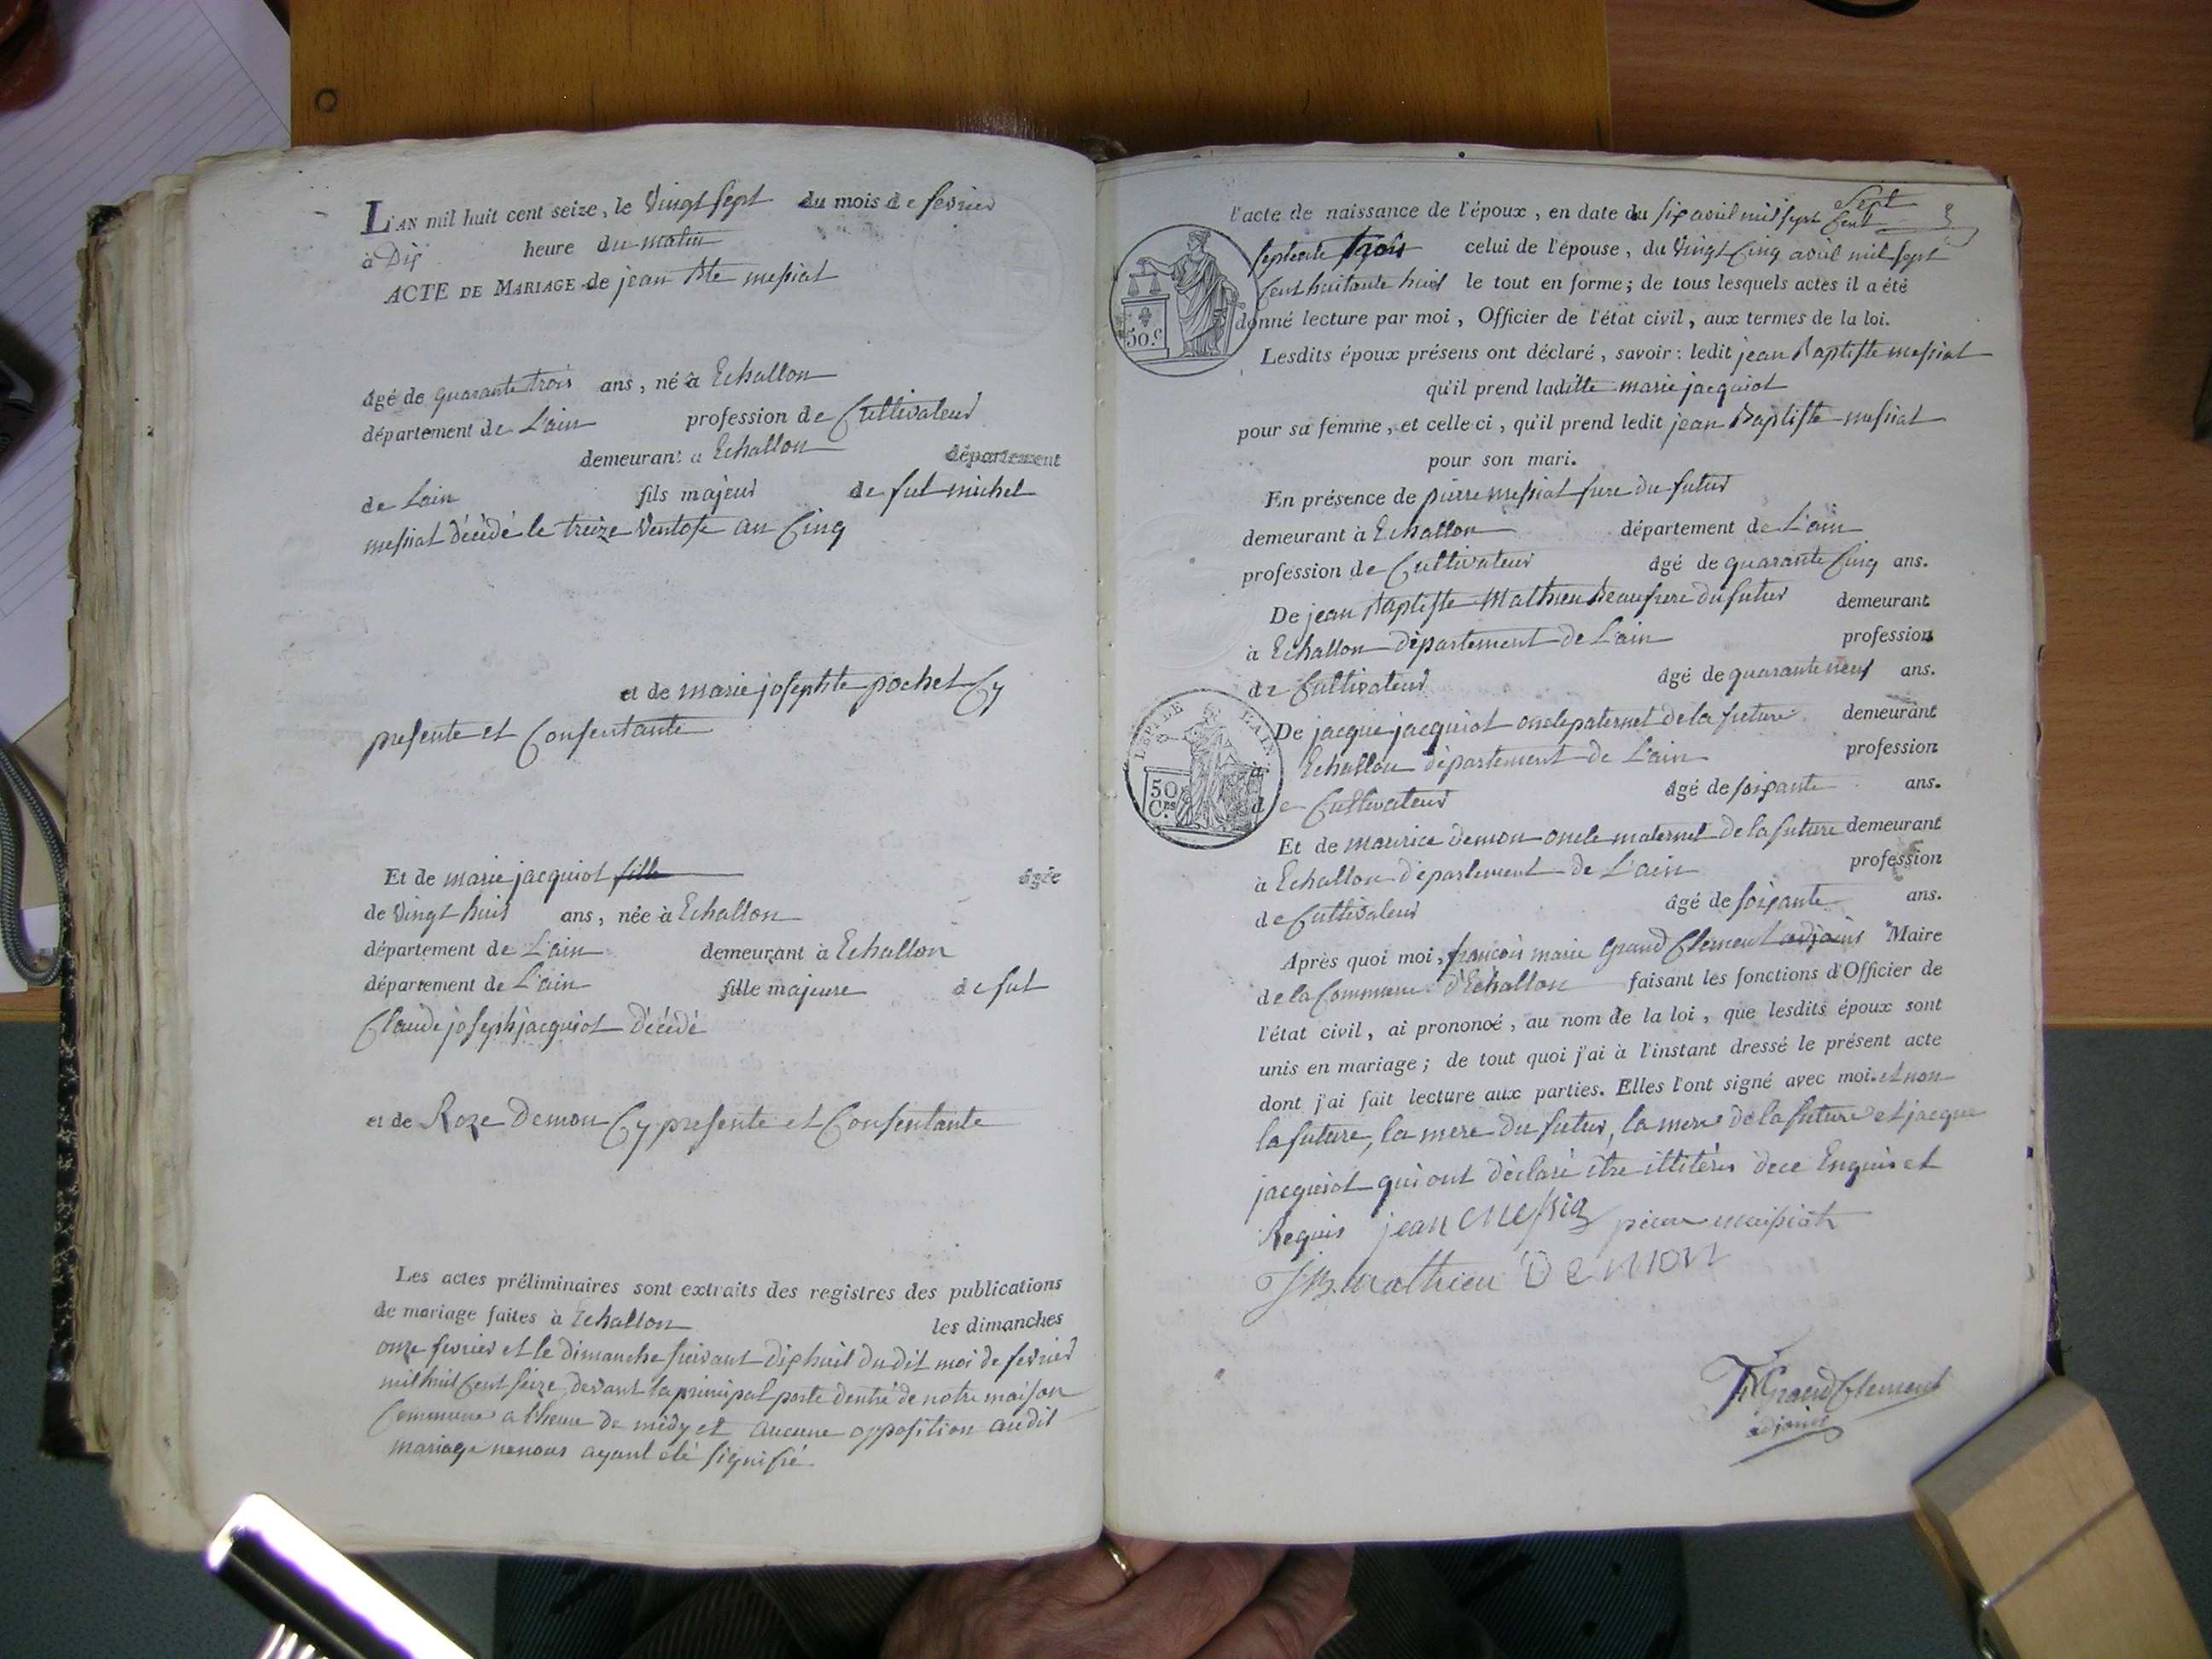 L'AN mil huit cent seize, le vingt sept du mois de fevrier
à Dix heure du matin
ACTE DE MARIAGE de jean Bte messiat
âgé de quarante trois ans, né à Echallon
département de L'ain profession de Cultivateur
demeurant a Echallon département
de Lain fils majeur de fut michel
messiat décédé le treize Ventose an Cinq
et de marie josephte pochet Cy
presente et Consentante
Et de marie jacquiot fille âgée
de vingt huit ans, née à Echallon
département de L'ain demeurant à Echallon
département de L'ain fille majeure de fut
Claude joseph jacquiot décédé
et de Roze Demon Cy presente et Consentante
Les actes préliminaires sont extraits des registres des publications
de mariage faites à Echallon les dimanches
onze fevrier et le dimanche suivant dixhuit dudit moi de fevrier
mil huit Cent seize, devant la principal porte dentré de notre maison
Commune a lheure de midy et aucune opposition audit
mariage ne nous ayant été signifié.
l'acte de naissance de l'époux, en date du six avril mil sept Cent
septente trois celui de l'épouse, du vingt Cinq avril mil sept
Cent huitante huit le tout en forme; de tous lesquels actes il a été
donné lecture par moi, Officier de l'état civil, aux termes de la loi.
50.c
Lesdits époux présens ont déclaré, savoir: ledit jean Baptiste messiat
qu'il prend laditte marie jacquiot
pour sa femme, et celle ci, qu'il prend ledit jean Baptiste messiat
pour son mari.
En présence de pierre messiat frere du futur
demeurant à Echallon département de L'ain
profession de Cultivateur âgé de quarante Cinq ans.
De jean Baptiste Mathieu Beaufrere du futur demeurant
à Echallon département de L'ain profession
de Cultivateur âgé de quarante neuf ans.
De jacque jacquiot oncle paternel de la future demeurant
à Echallon département de L'ain profession
de Cultivateur âgé de soixante ans.
50 Ces
Et de maurice demon oncle maternel de la future demeurant
à Echallon département de L'ain profession
de Cultivateur âgé de soixante ans.
Après quoi moi, francois marie Grand Clement adjoint Maire
de la Commune d'Echallon faisant les fonctions d'Officier de
l'état civil, ai prononcé, au nom de la loi, que lesdits époux sont
unis en mariage; de tout quoi j'ai à l'instant dressé le présent acte
dont j'ai fait lecture aux parties. Elles l'ont signé avec moi. et non
la future, la mere du futur, la mere de la future et jacque
jacquiot qui ont déclaré être illitérés de ce Enquis et
Requis jean messia pierre maissiat
JB. Mathieu DEMON
GrandClement
adjoint